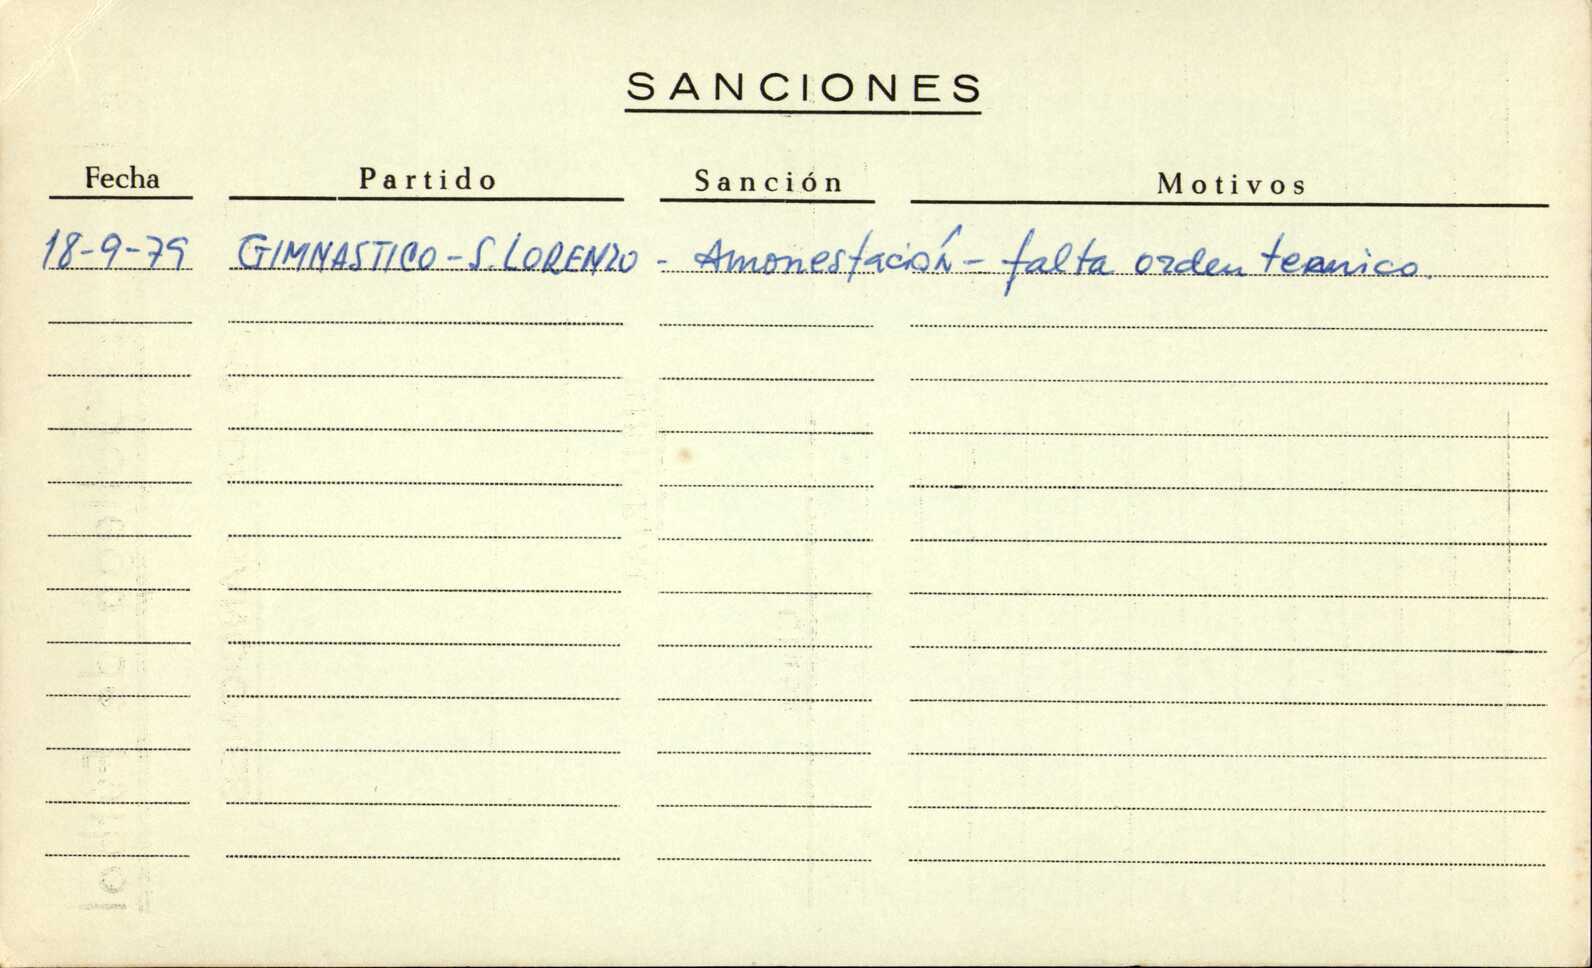 SANCIONES
Fecha Partido Sanción Motivos
18-9-79 GIMNASTICO - S. LORENZO - Amonestación - falta orden tecnico.